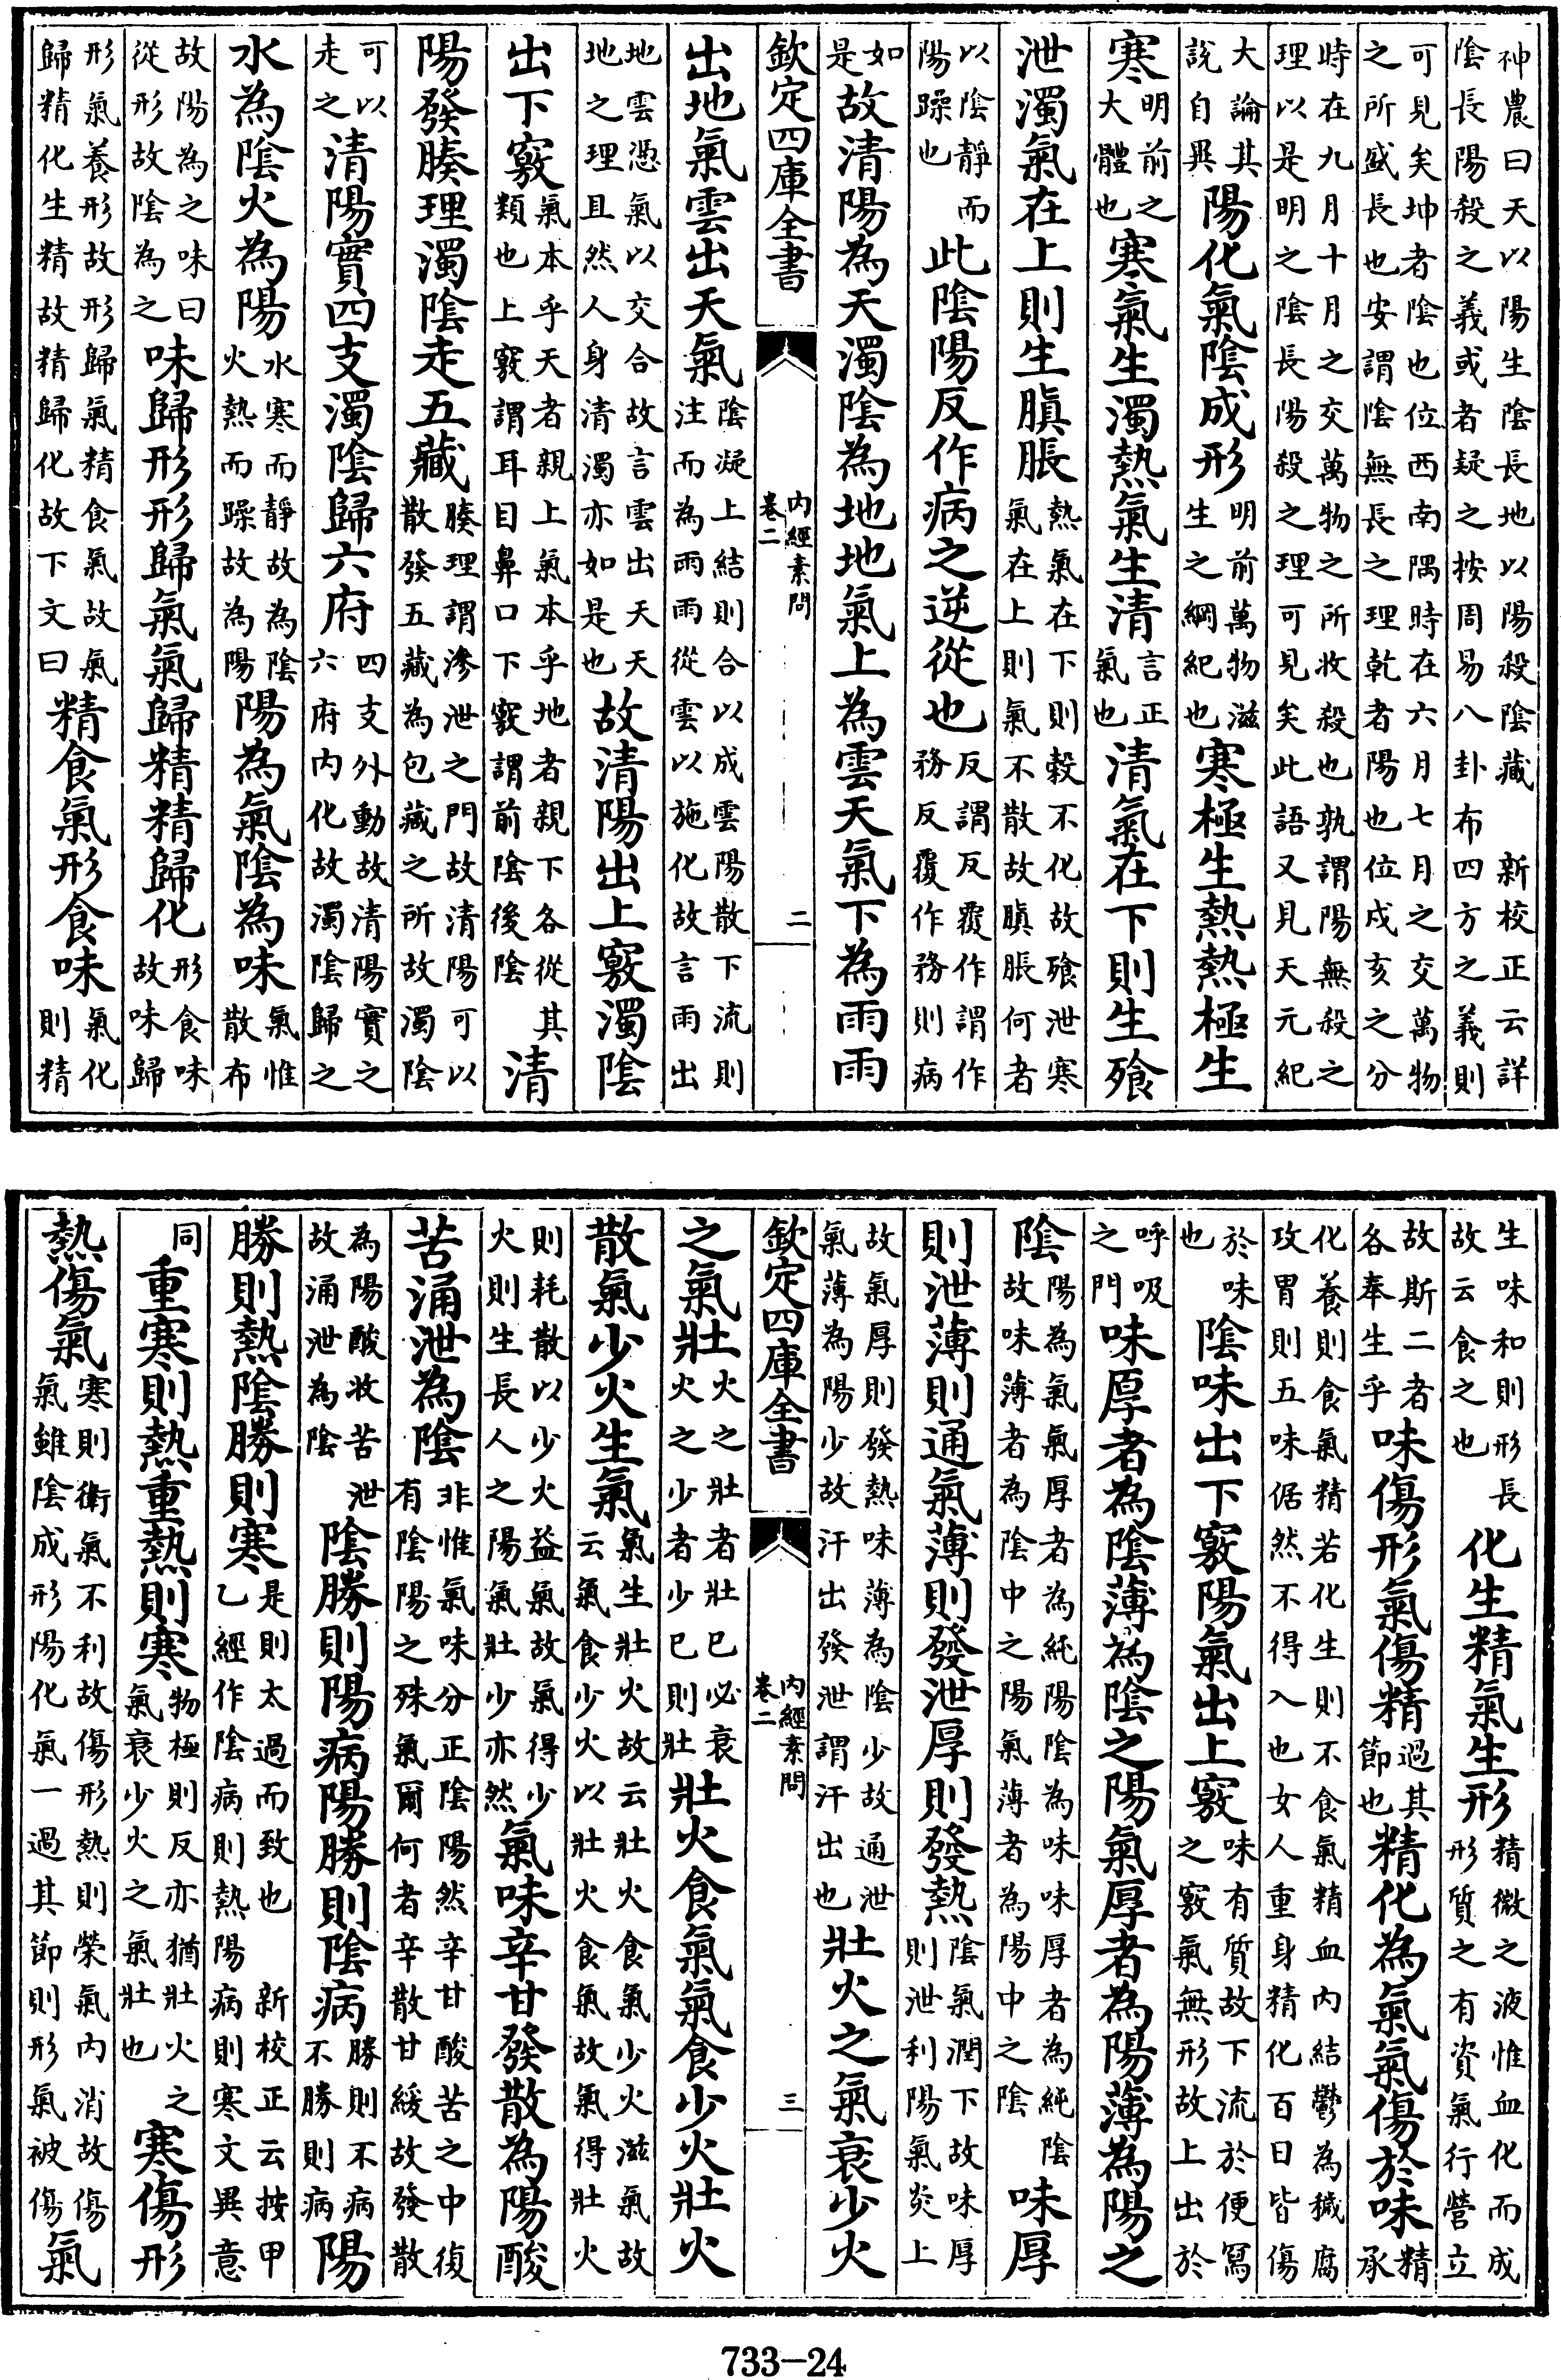 神農曰天以陽生陰長地以陽殺陰藏 新校正云詳陰長陽殺之義或者疑之按周易八卦布四方之義則
可見矣坤者陰也位西南隅時在六月七月之交萬物之所盛長也安謂陰無長之理乾者陽也位戌亥之分
時在九月十月之交萬物之所收殺也孰謂陽無殺之理以是明之陰長陽殺之理可見矣此語又見天元紀
大論其說自異陽化氣陰成形明前萬物滋生之綱紀也寒極生熱熱極生
寒明前之大體也寒氣生濁熱氣生清言正氣也清氣在下則生飱
泄濁氣在上則生䐜脹熱氣在下則穀不化故飱泄寒氣在上則氣不散故䐜脹何者
以陰靜而陽躁也此陰陽反作病之逆從也反謂反覆作謂作務反覆作務則病
如是故清陽為天濁陰為地地氣上為雲天氣下為雨雨
欽定四庫全書 內經素問 卷二 二
出地氣雲出天氣陰凝上結則合以成雲陽散下流則注而為雨雨從雲以施化故言雨出
地雲憑氣以交合故言雲出天天地之理且然人身清濁亦如是也故清陽出上竅濁陰
出下竅氣本乎天者親上氣本乎地者親下各從其類也上竅謂耳目鼻口下竅謂前陰後陰清
陽發腠理濁陰走五藏腠理謂滲泄之門故清陽可以散發五藏為包藏之所故濁陰
可以走之清陽實四支濁陰歸六府四支外動故清陽實之六府內化故濁陰歸之
水為陰火為陽水寒而靜故為陰火熱而躁故為陽陽為氣陰為味氣惟散布
故陽為之味曰從形故陰為之味歸形形歸氣氣歸精精歸化形食味故味歸
形氣養形故形歸氣精食氣故氣歸精化生精故精歸化故下文曰精食氣形食味氣化則精
生味和則形長故云食之也化生精氣生形精微之液惟血化而成形質之有資氣行營立
故斯二者各奉生乎味傷形氣傷精過其節也精化為氣氣傷於味精承
化養則食氣精若化生則不食氣精血內結鬱為穢腐攻胃則五味倨然不得入也女人重身精化百日皆傷
於味也陰味出下竅陽氣出上竅味有質故下流於便冩之竅氣無形故上出於
呼吸之門味厚者為陰薄為陰之陽氣厚者為陽薄為陽之
陰陽為氣氣厚者為純陽陰為味味厚者為純陰故味薄者為陰中之陽氣薄者為陽中之陰味厚
則泄薄則通氣薄則發泄厚則發熱陰氣潤下故味厚則泄利陽氣炎上
故氣厚則發熱味薄為陰少故通泄氣薄為陽少故汗出發泄謂汗出也壯火之氣衰少火
欽定四庫全書 內經素問 卷二 三
之氣壯火之壯者壯已必衰火之少者少已則壯壯火食氣氣食少火壯火
散氣少火生氣氣生壯火故云壯火食氣少火滋氣故云氣食少火以壯火食氣故氣得壯火
則耗散以少火益氣故氣得少火則生長人之陽氣壯少亦然氣味辛甘發散為陽酸
苦涌泄為陰非惟氣味分正陰陽然辛甘酸苦之中復有陰陽之殊氣爾何者辛散甘緩故發散
為陽酸收苦泄故涌泄為陰陰勝則陽病陽勝則陰病勝則不病不勝則病陽
勝則熱陰勝則寒是則太過而致也 新校正云按甲乙經作陰病則熱陽病則寒文異意
同重寒則熱重熱則寒物極則反亦猶壯火之氣衰少火之氣壯也寒傷形
熱傷氣寒則衛氣不利故傷形熱則榮氣內消故傷氣雖陰成形陽化氣一過其節則形氣被傷氣
733-24